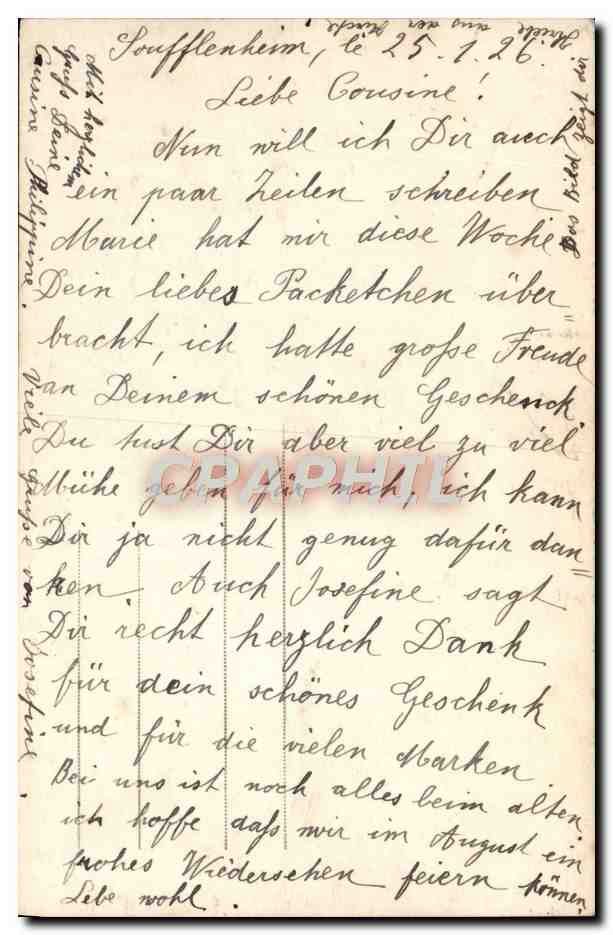 Soufflenheim, le 25.1.26.
Liebe Cousine!
Nun will ich Dir auch
ein paar Zeilen schreiben
Marie hat mir diese Woche
Dein liebes Packetchen über=
bracht, ich hatte große Freude
an Deinem schönen Geschenck
Du tust Dir aber viel zu viel
Mühe geben für mich, ich kann
Dir ja nicht genug dafür dan=
ken. Auch Josefine sagt
Dir recht herzlich Dank
für dein schönes Geschenk
und für die vielen Marken
Bei uns ist noch alles beim alten
ich hoffe daß wir im August ein
frohes Wiedersehen feiern können.
Lebe wohl.
Mit herzlichem
Gruß Deine
Cousine Philippine. Viele Grüße von Josefine.
Das Bild zeigt uns
aus der
CPAPHIL